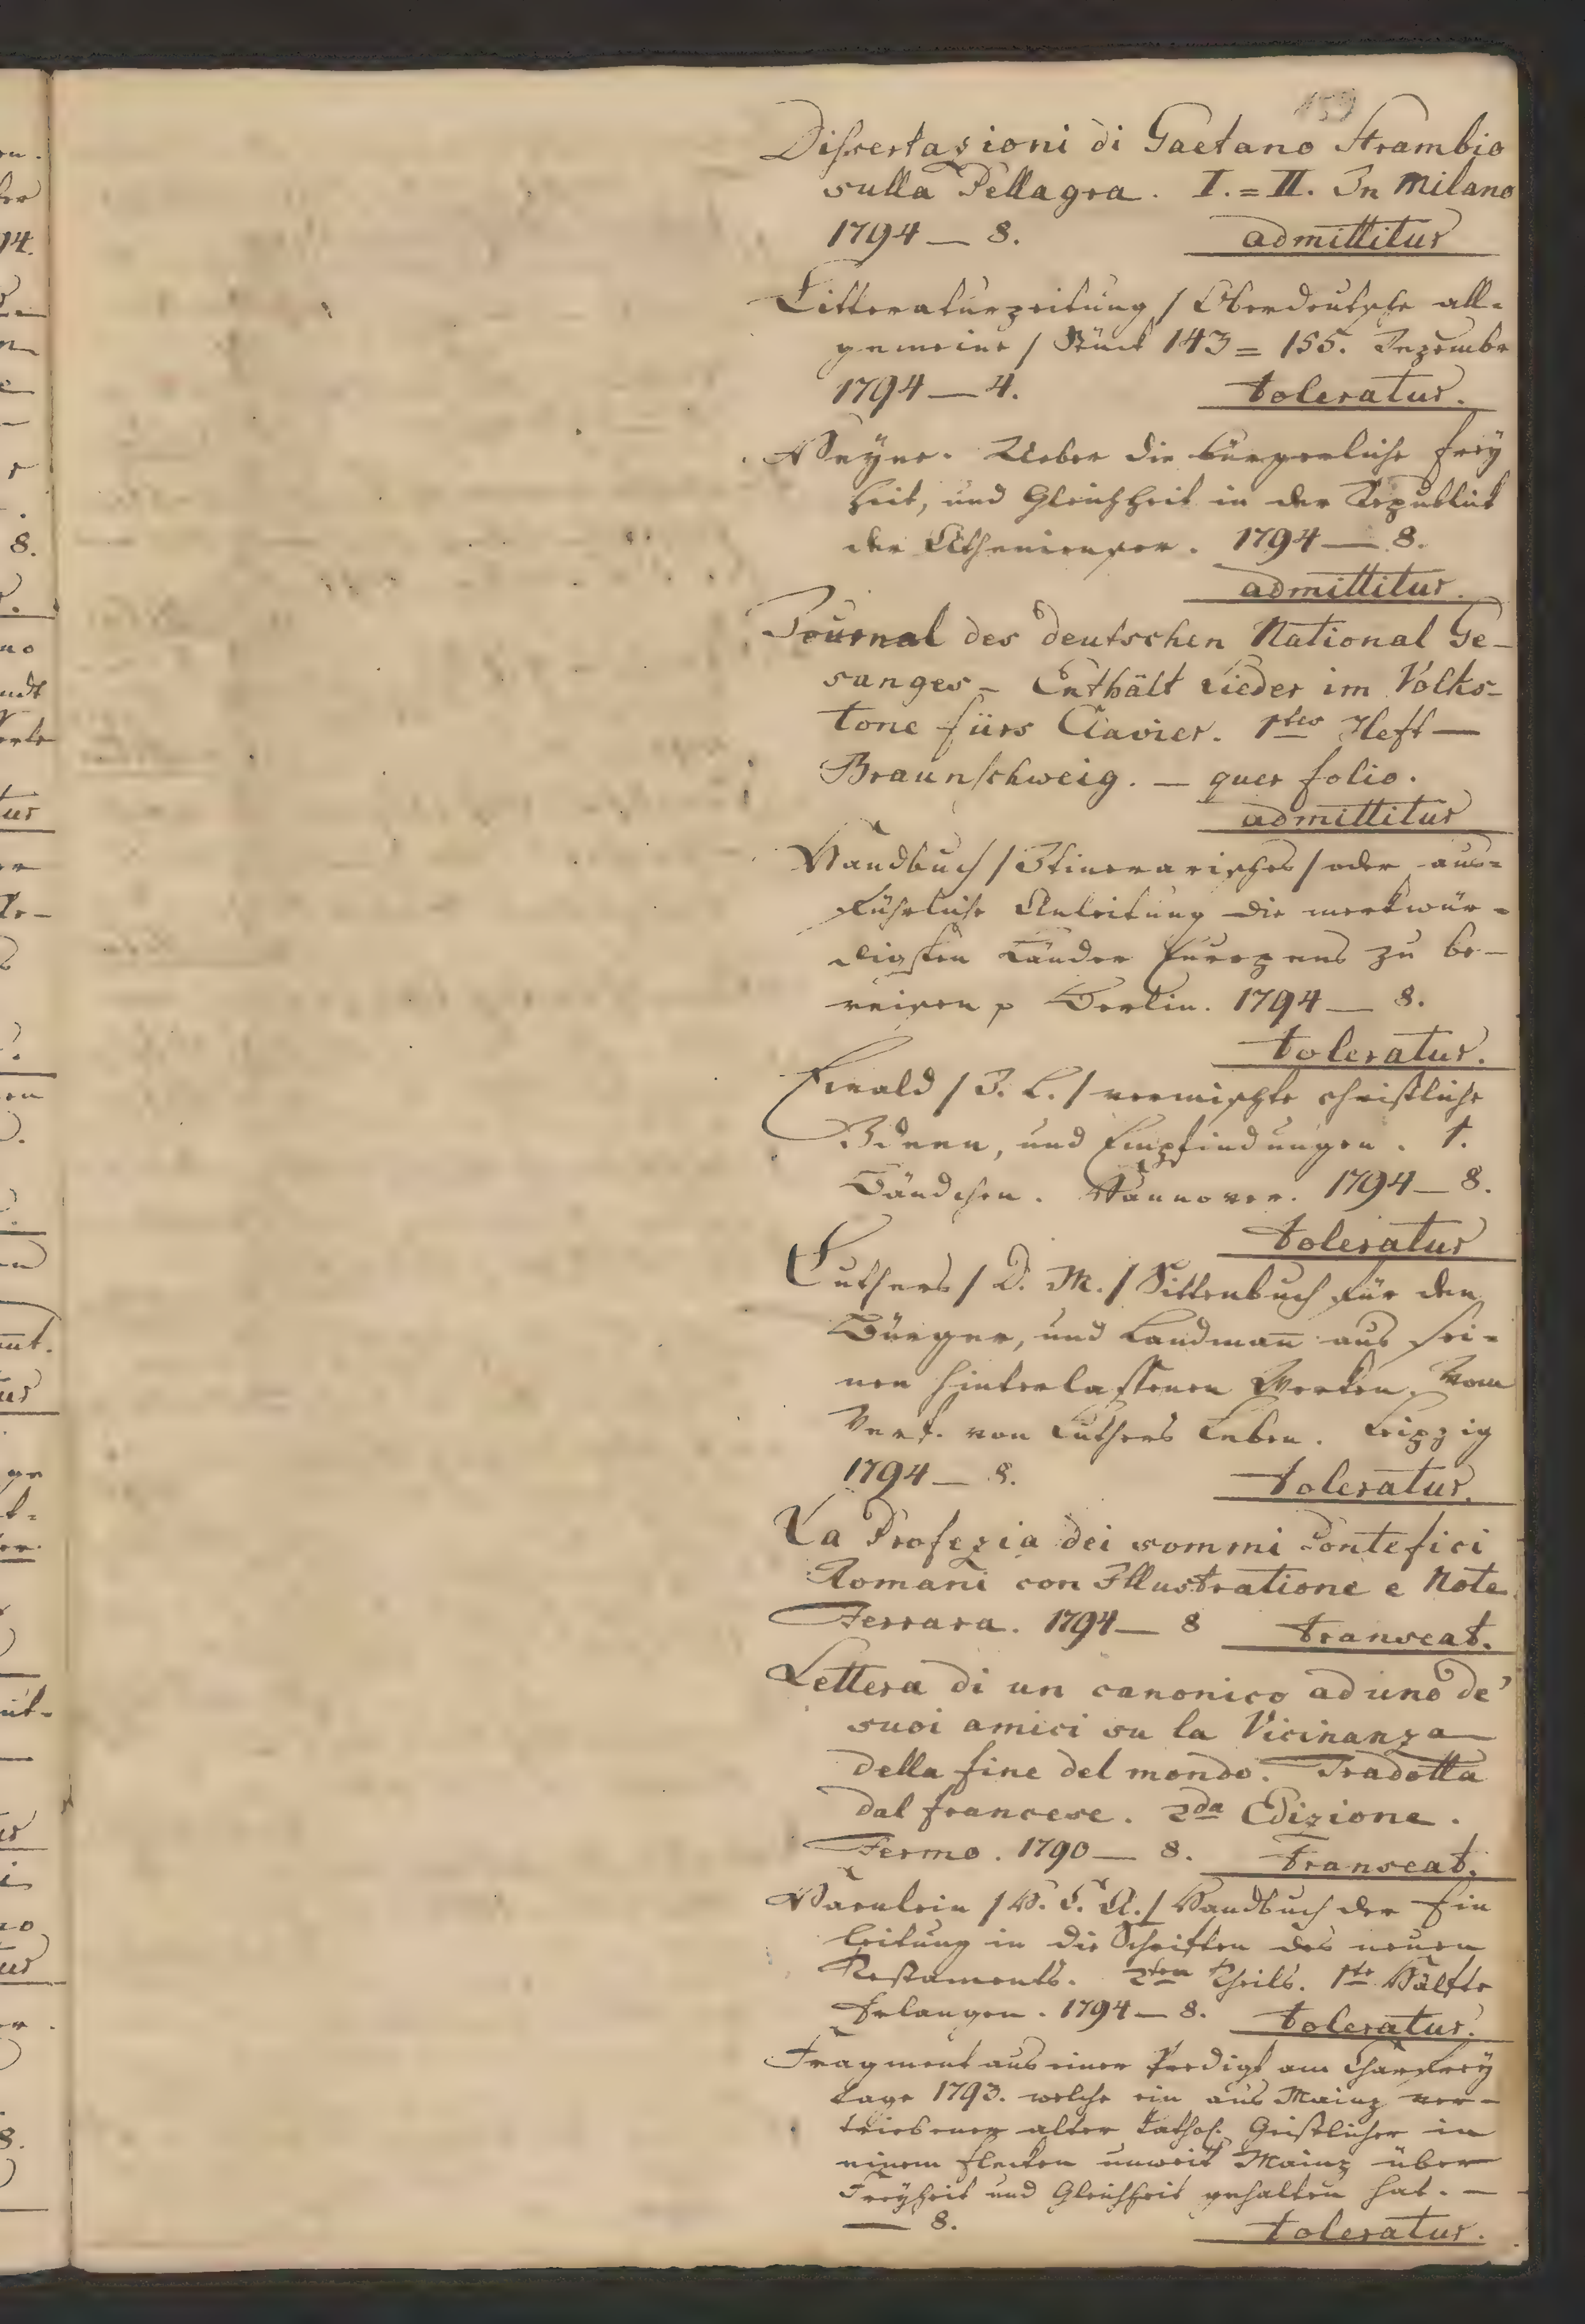 159
Dissertazioni di Gaetano Strambio
sulla Pellagra. I.=II. In Milano
1794 — 8. admittitur
Litteraturzeitung / Oberdeutsche all-
gemeine / Stück 143 = 155. Dezembr
1794 — 4. toleratur.
Heyne. Ueber die bürgerliche Frey
heit, und Gleichheit in der Republick
der Athenienser. 1794 — 8.
admittitur.
Journal des deutschen National Ge-
sanges - Enthält Lieder im Volks-
tone fürs Clavier. 1tes Heft —
Braunschweig. — quer folio.
admittitur
Handbuch / Itinerarisches / oder aus-
führliche Anleitung die merkwür-
digsten Länder Europens zu be-
reisen p Berlin. 1794 — 8.
toleratur.
Ewald / J. L. / vermischte christliche
Ideen, und Empfindungen. 1.
Bändchen. Hannover. 1794 — 8.
toleratur
Luthers / D. M. / Sittenbuch für den
Bürger, und Landmañ aus sei-
nen hinterlassenen Werken. Vom
Verf. von Luthers Leben. Leipzig
1794 — 8. toleratur.
La Profezia dei sommi Pontefici
Romani con Illustratione e Note
Ferrara. 1794 — 8 transeat.
Lettera di un canonico ad uno de'
suoi amici su la Vicinanza
della fine del mondo. Tradotta
dal francese. 2da Edizione.
Fermo. 1790 — 8. transeat.
Haenlein / H. C. A. / Handbuch der Ein
leitung in die Schriften des neuen
Testaments. 2ten Theils. 1te Hälfte
Erlangen. 1794 — 8. toleratur.
Fragment aus einer Predigt am Charfrey
tage 1793. welche ein aus Mainz ver-
triebener alter kathol. Geistlicher in
einem Flecken unweit Mainz über
Freyheit und Gleichheit gehalten hat. —
— 8. toleratur.